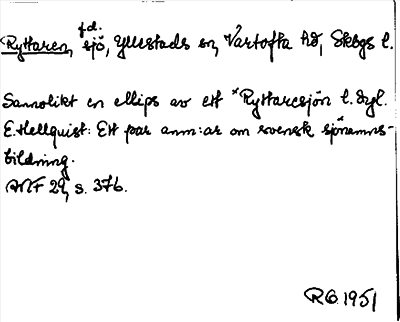 f.d.
Ryttaren, sjö, Yllestads sn, Vartofta hd, Skbgs l.
Sannolikt en ellips av ett *Ryttaresjön l. dyl.
E. Hellquist: Ett par anm:ar om svensk sjönamns-
bildning.
ANF 29, s. 376.
RG. 1951